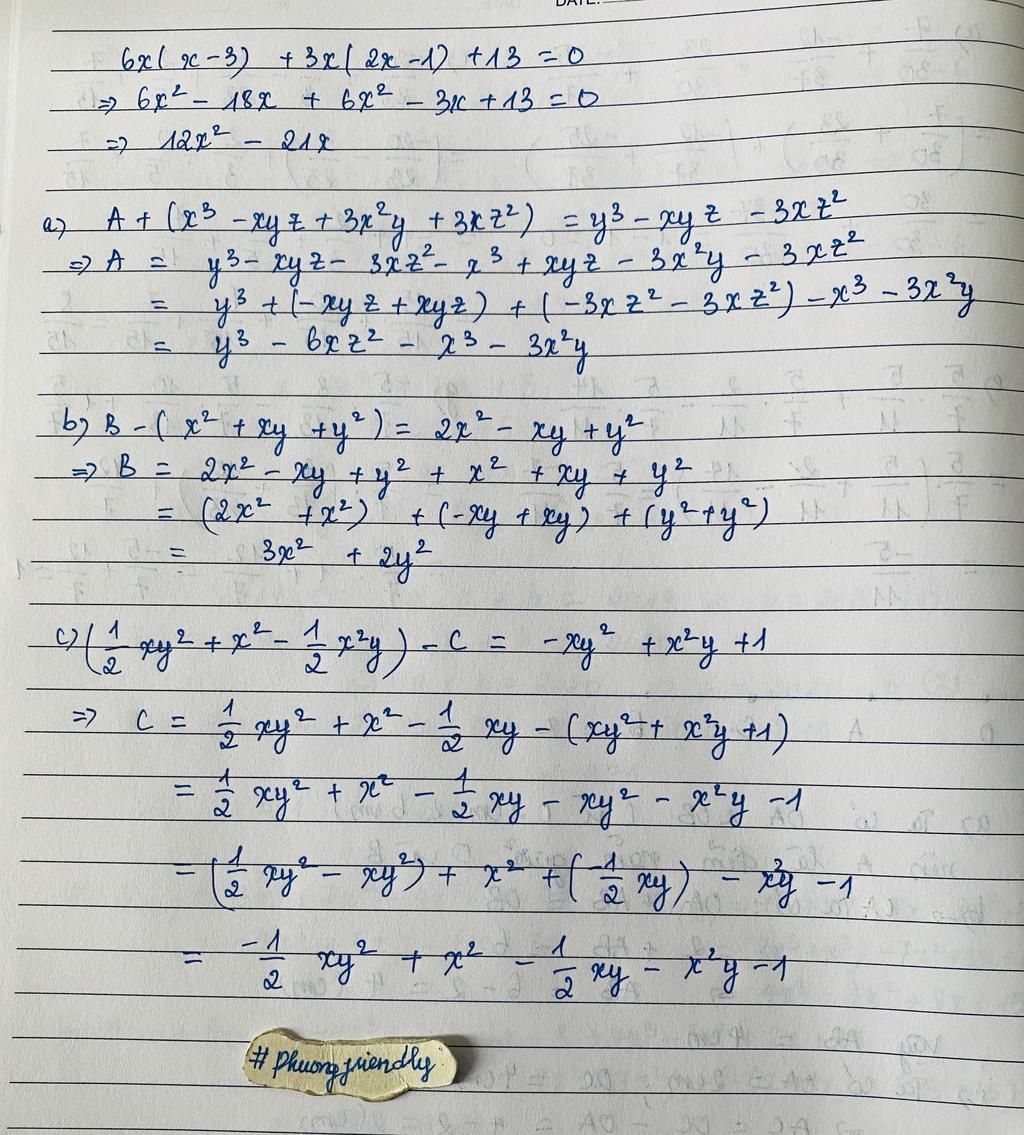 DATE:
6x(x-3) + 3x(2x-1) + 13 = 0
=> 6x² - 18x + 6x² - 3x + 13 = 0
=> 12x² - 21x
a) A + (x³ - xyz + 3x²y + 3xz²) = y³ - xyz - 3xz²
=> A = y³ - xyz - 3xz² - x³ + xyz - 3x²y - 3xz²
= y³ + (-xyz + xyz) + (-3xz² - 3xz²) - x³ - 3x²y
= y³ - 6xz² - x³ - 3x²y
b) B - (x² + xy + y²) = 2x² - xy + y²
=> B = 2x² - xy + y² + x² + xy + y²
= (2x² + x²) + (-xy + xy) + (y² + y²)
= 3x² + 2y²
c) (1/2 xy² + x² - 1/2 x²y) - C = -xy² + x²y + 1
=> C = 1/2 xy² + x² - 1/2 xy - (xy² + x²y + 1)
= 1/2 xy² + x² - 1/2 xy - xy² - x²y - 1
= (1/2 xy² - xy²) + x² + (-1/2 xy) - x²y - 1
= -1/2 xy² + x² - 1/2 xy - x²y - 1
# Phuongfriendly